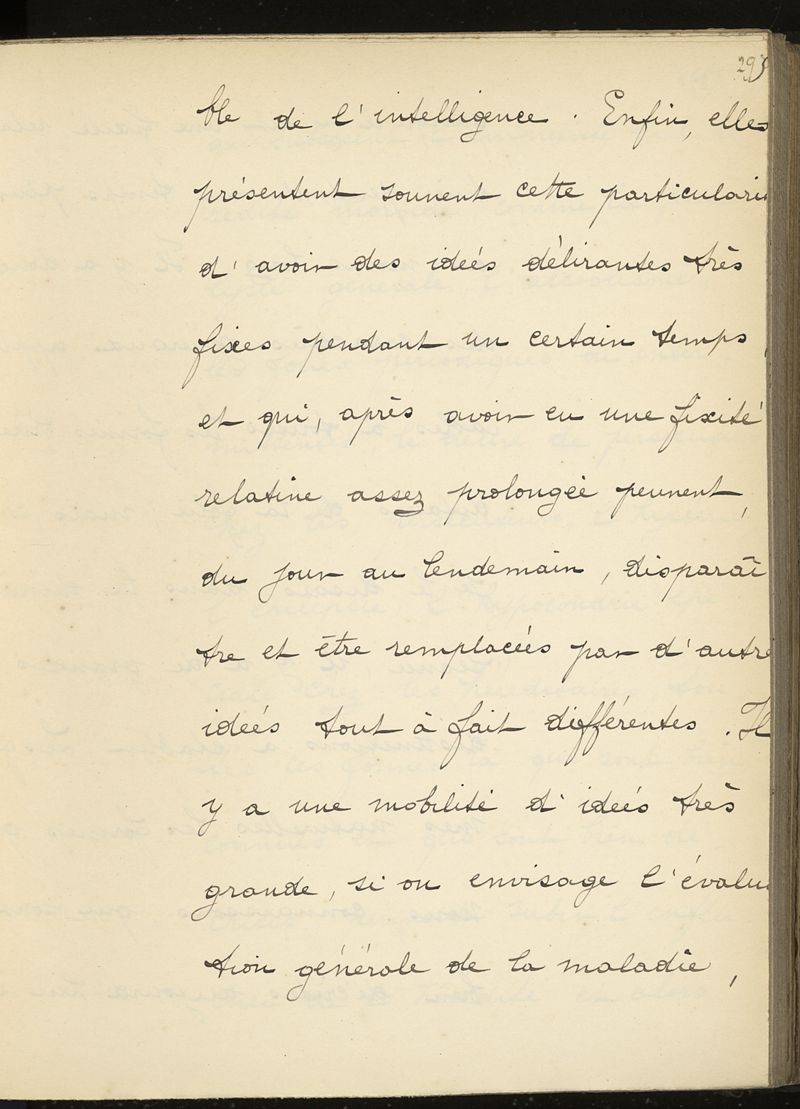 293
ble de l'intelligence. Enfin, elles
présentent souvent cette particulari
d'avoir des idées délirantes très
fixes pendant un certain temps,
et qui, après avoir eu une fixité
relative assez prolongée peuvent,
du jour au lendemain, disparaî
tre et être remplacées par d'autre
idées tout à fait différentes. Il
y a une mobilité d'idées très
grande, si on envisage l'évolu
tion générale de la maladie,